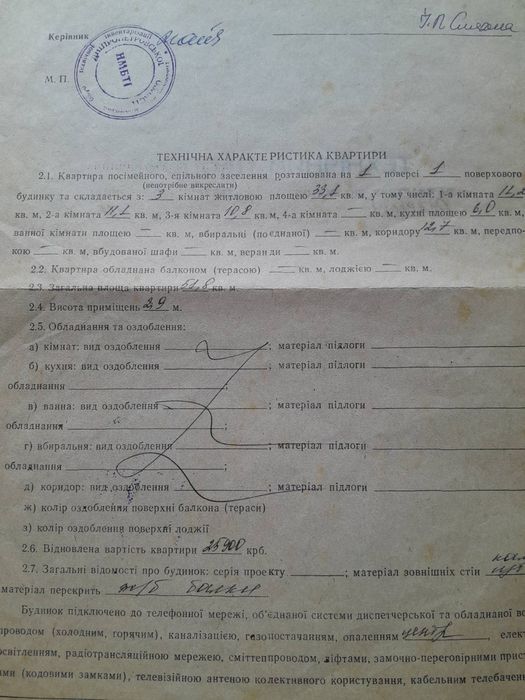 Керівник
М. П.
НМБТІ
ТЕХНІЧНА ХАРАКТЕРИСТИКА КВАРТИРИ
2.1. Квартира посімейного, спільного заселення розташована на 1 поверсі 1 поверхового
(непотрібне викреслити)
будинку та складається з: 3 кімнат житловою площею 33,1 кв. м, у тому числі: 1-а кімната 11,2
кв. м, 2-а кімната 11,1 кв. м, 3-я кімната 10,8 кв. м, 4-а кімната — кв. м, кухні площею 6,0 кв. м,
ванної кімнати площею — кв. м, вбиральні (поєднаної) — кв. м, коридору 12,7 кв. м, передпо-
кою — кв. м, вбудованої шафи — кв. м, веранди — кв. м.
2.2. Квартира обладнана балконом (терасою) — кв. м, лоджією — кв. м.
2.3. Загальна площа квартири 51,8 кв. м.
2.4. Висота приміщень 2,9 м.
2.5. Обладнання та оздоблення:
а) кімнат: вид оздоблення ; матеріал підлоги
б) кухня: вид оздоблення ; матеріал підлоги
обладнання
в) ванна: вид оздоблення ; матеріал підлоги
обладнання ;
г) вбиральня: вид оздоблення ; матеріал підлоги
обладнання ;
д) коридор: вид оздоблення ; матеріал підлоги
ж) колір оздоблення поверхні балкона (тераси)
з) колір оздоблення поверхні лоджії
2.6. Відновлена вартість квартири 25900 крб.
2.7. Загальні відомості про будинок: серія проекту ; матеріал зовнішніх стін
матеріал перекрить балки
Будинок підключено до телефонної мережі, об'єднаної системи диспетчерської та обладнаної во
проводом (холодним, горячим), каналізацією, газопостачанням, опаленням центр, елект
освітленням, радіотрансляційною мережею, сміттєпроводом, ліфтами, замочно-переговорними прист
ами (кодовими замками), телевізійною антеною колективного користування, кабельним телебачен